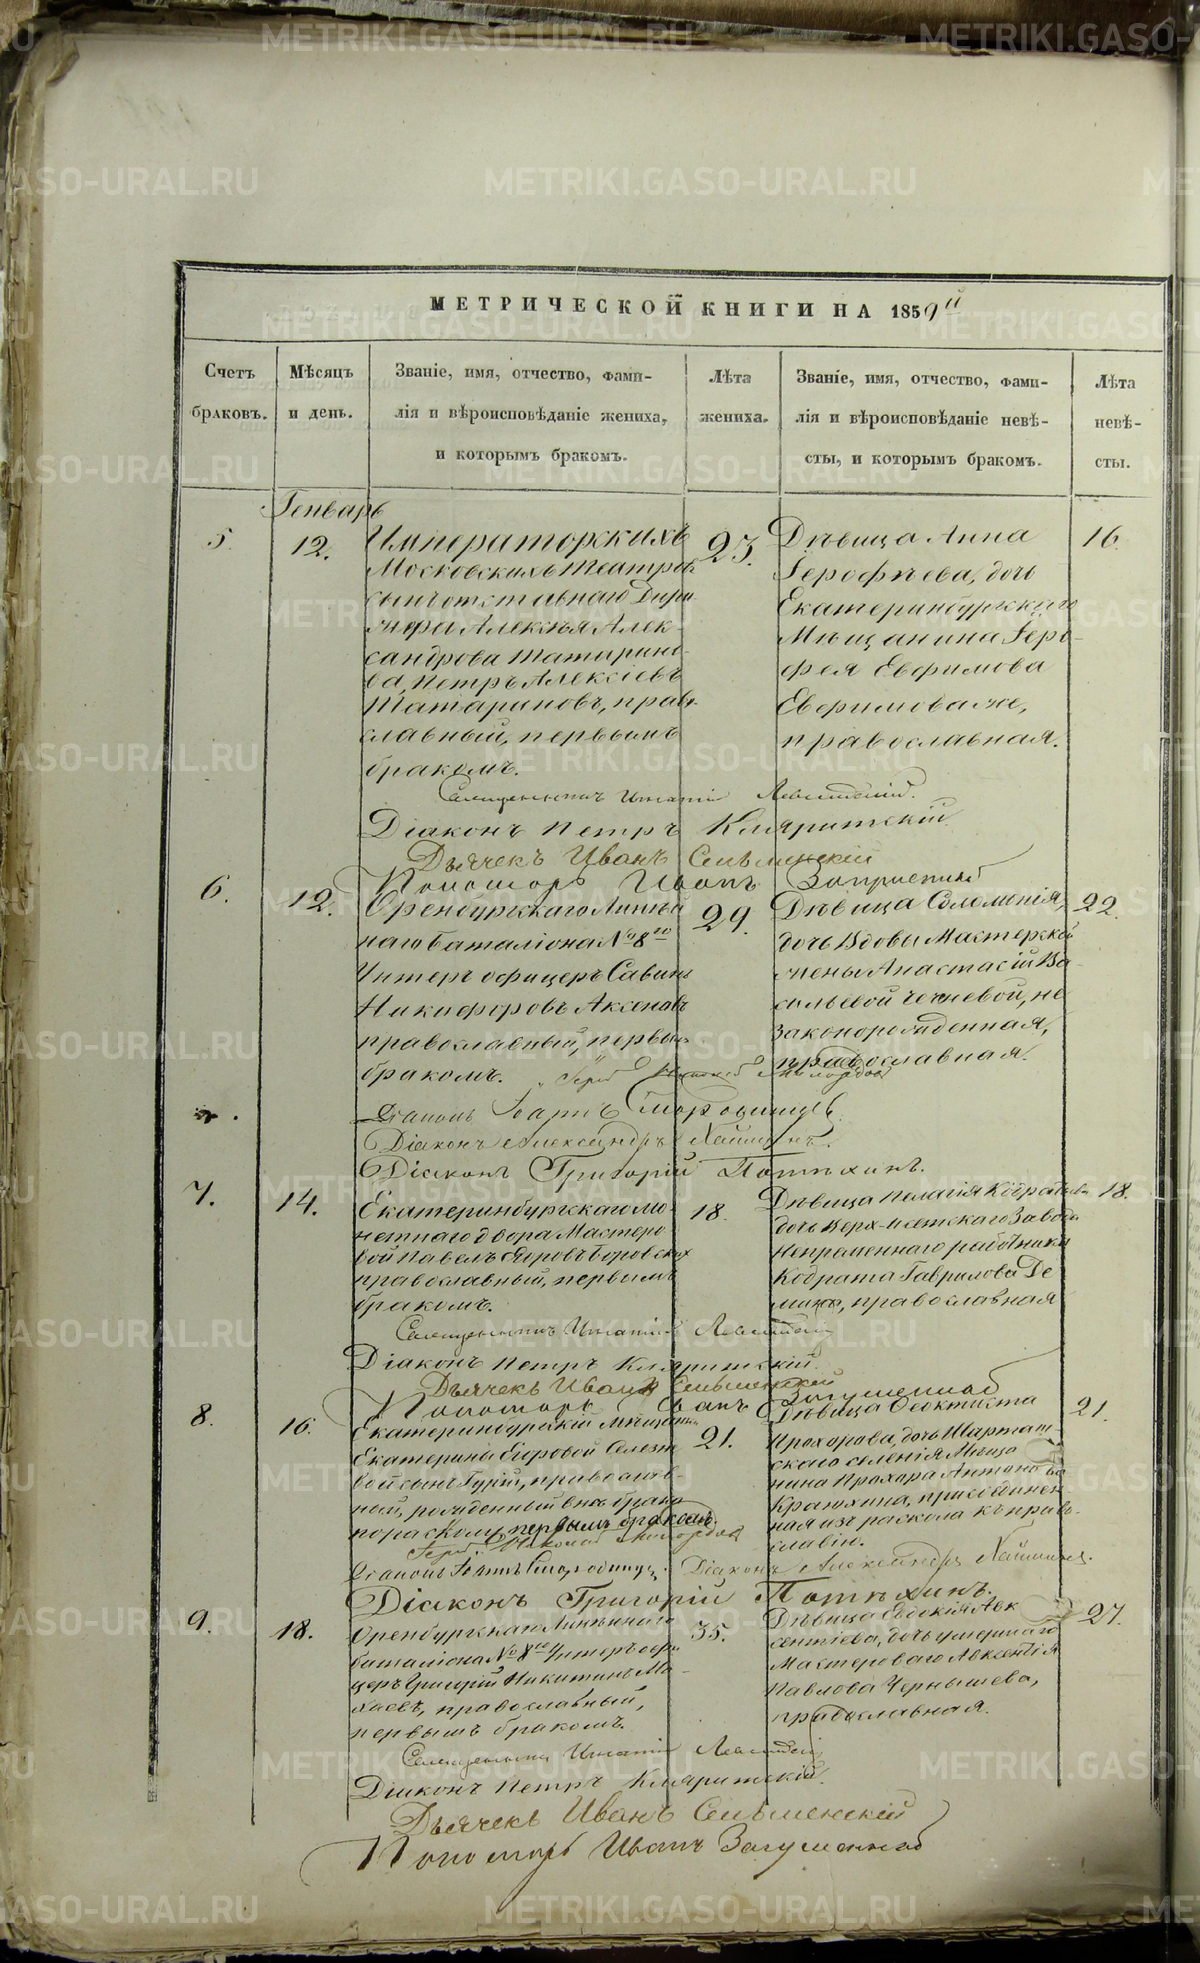 МЕТРИЧЕСКОЙ КНИГИ НА 1859й
Счетъ браковъ.
Мѣсяцъ и день.
Званіе, имя, отчество, фами-
лія и вѣроисповѣданіе жениха,
и которымъ бракомъ.
Лѣта жениха.
Званіе, имя, отчество, фами-
лія и вѣроисповѣданіе невѣ-
сты, и которымъ бракомъ.
Лѣта невѣ-
сты.
Генварь
5.
12.
Императорскихъ
Московскихъ театров
сынъ отставнаго
Алексѣя Алек-
сандрова Татарино-
ва, Петръ Алексіевъ
Татариновъ, право-
славный, первымъ
бракомъ.
23.
Дѣвица Анна
Іерофѣева, дочь
Екатеринбургскаго
Мѣщанина Іеро-
фея Евфимова
Евфимова же,
православная.
16.
Священникъ Игнатій Левитскій.
Діаконъ Петръ
Дьячекъ Иванъ Сельменскій
Пономарь Иванъ
6.
12.
Оренбургскаго Линѣй
наго баталіона № 8го
Унтеръ офицеръ Савинъ
Никифоровъ Аксеновъ
православный, первым
бракомъ.
29.
Дѣвица Соломонія,
дочь вдовы Мастерской
жены Анастасіи Ва-
сильевой, не
законорожденная,
православная.
22.
Діаконъ Іоаннъ Смородинцевъ
Діаконъ Александръ
Діаконъ Григорій Потѣхинъ.
7.
14.
Екатеринбургскаго мо-
нетнаго двора Мастеро
вой Павелъ
православный, первымъ
бракомъ.
18.
Дѣвица Пелагія Кодратьева
дочь Верх-Исетскаго Завода
непременнаго работника
Кодрата Гаврилова Де
мина, православная
18.
Священникъ Игнатій Левитскій
Діаконъ Петръ
Дьячекъ Иванъ Сельменскій
Пономарь Иванъ Загуменной
8.
16.
Екатеринбургскій Мѣщанинъ
Екатерины Егоровой
вой сынъ Гурій, православ-
ный, рожденный внѣ брака
по расколу, первымъ бракомъ.
21.
Дѣвица Феоктиста
Прохорова, дочь Шарташ
скаго селенія Мѣща
нина Прохора Антонова
Краюхина, присоединен
ная изъ раскола къ право-
славію.
21.
Діаконъ Іоаннъ Смородинцев. Діаконъ Александръ
Діаконъ Григорій Потѣхинъ.
9.
18.
Оренбургскаго Линѣйнаго
баталіона № 8го Унтеръ офи
церъ Григорій Никитинъ Ма-
каевъ, православный,
первымъ бракомъ.
35.
Дѣвица Евдокія Авк
сентіева, дочь умершаго
Мастероваго Авксентія
Павлова Чернышева,
православная.
27.
Священникъ Игнатій Левитскій
Діаконъ Петръ
Дьячекъ Иванъ Сельменскій
Пономарь Иванъ Загуменной
METRIKI.GASO-URAL.RU